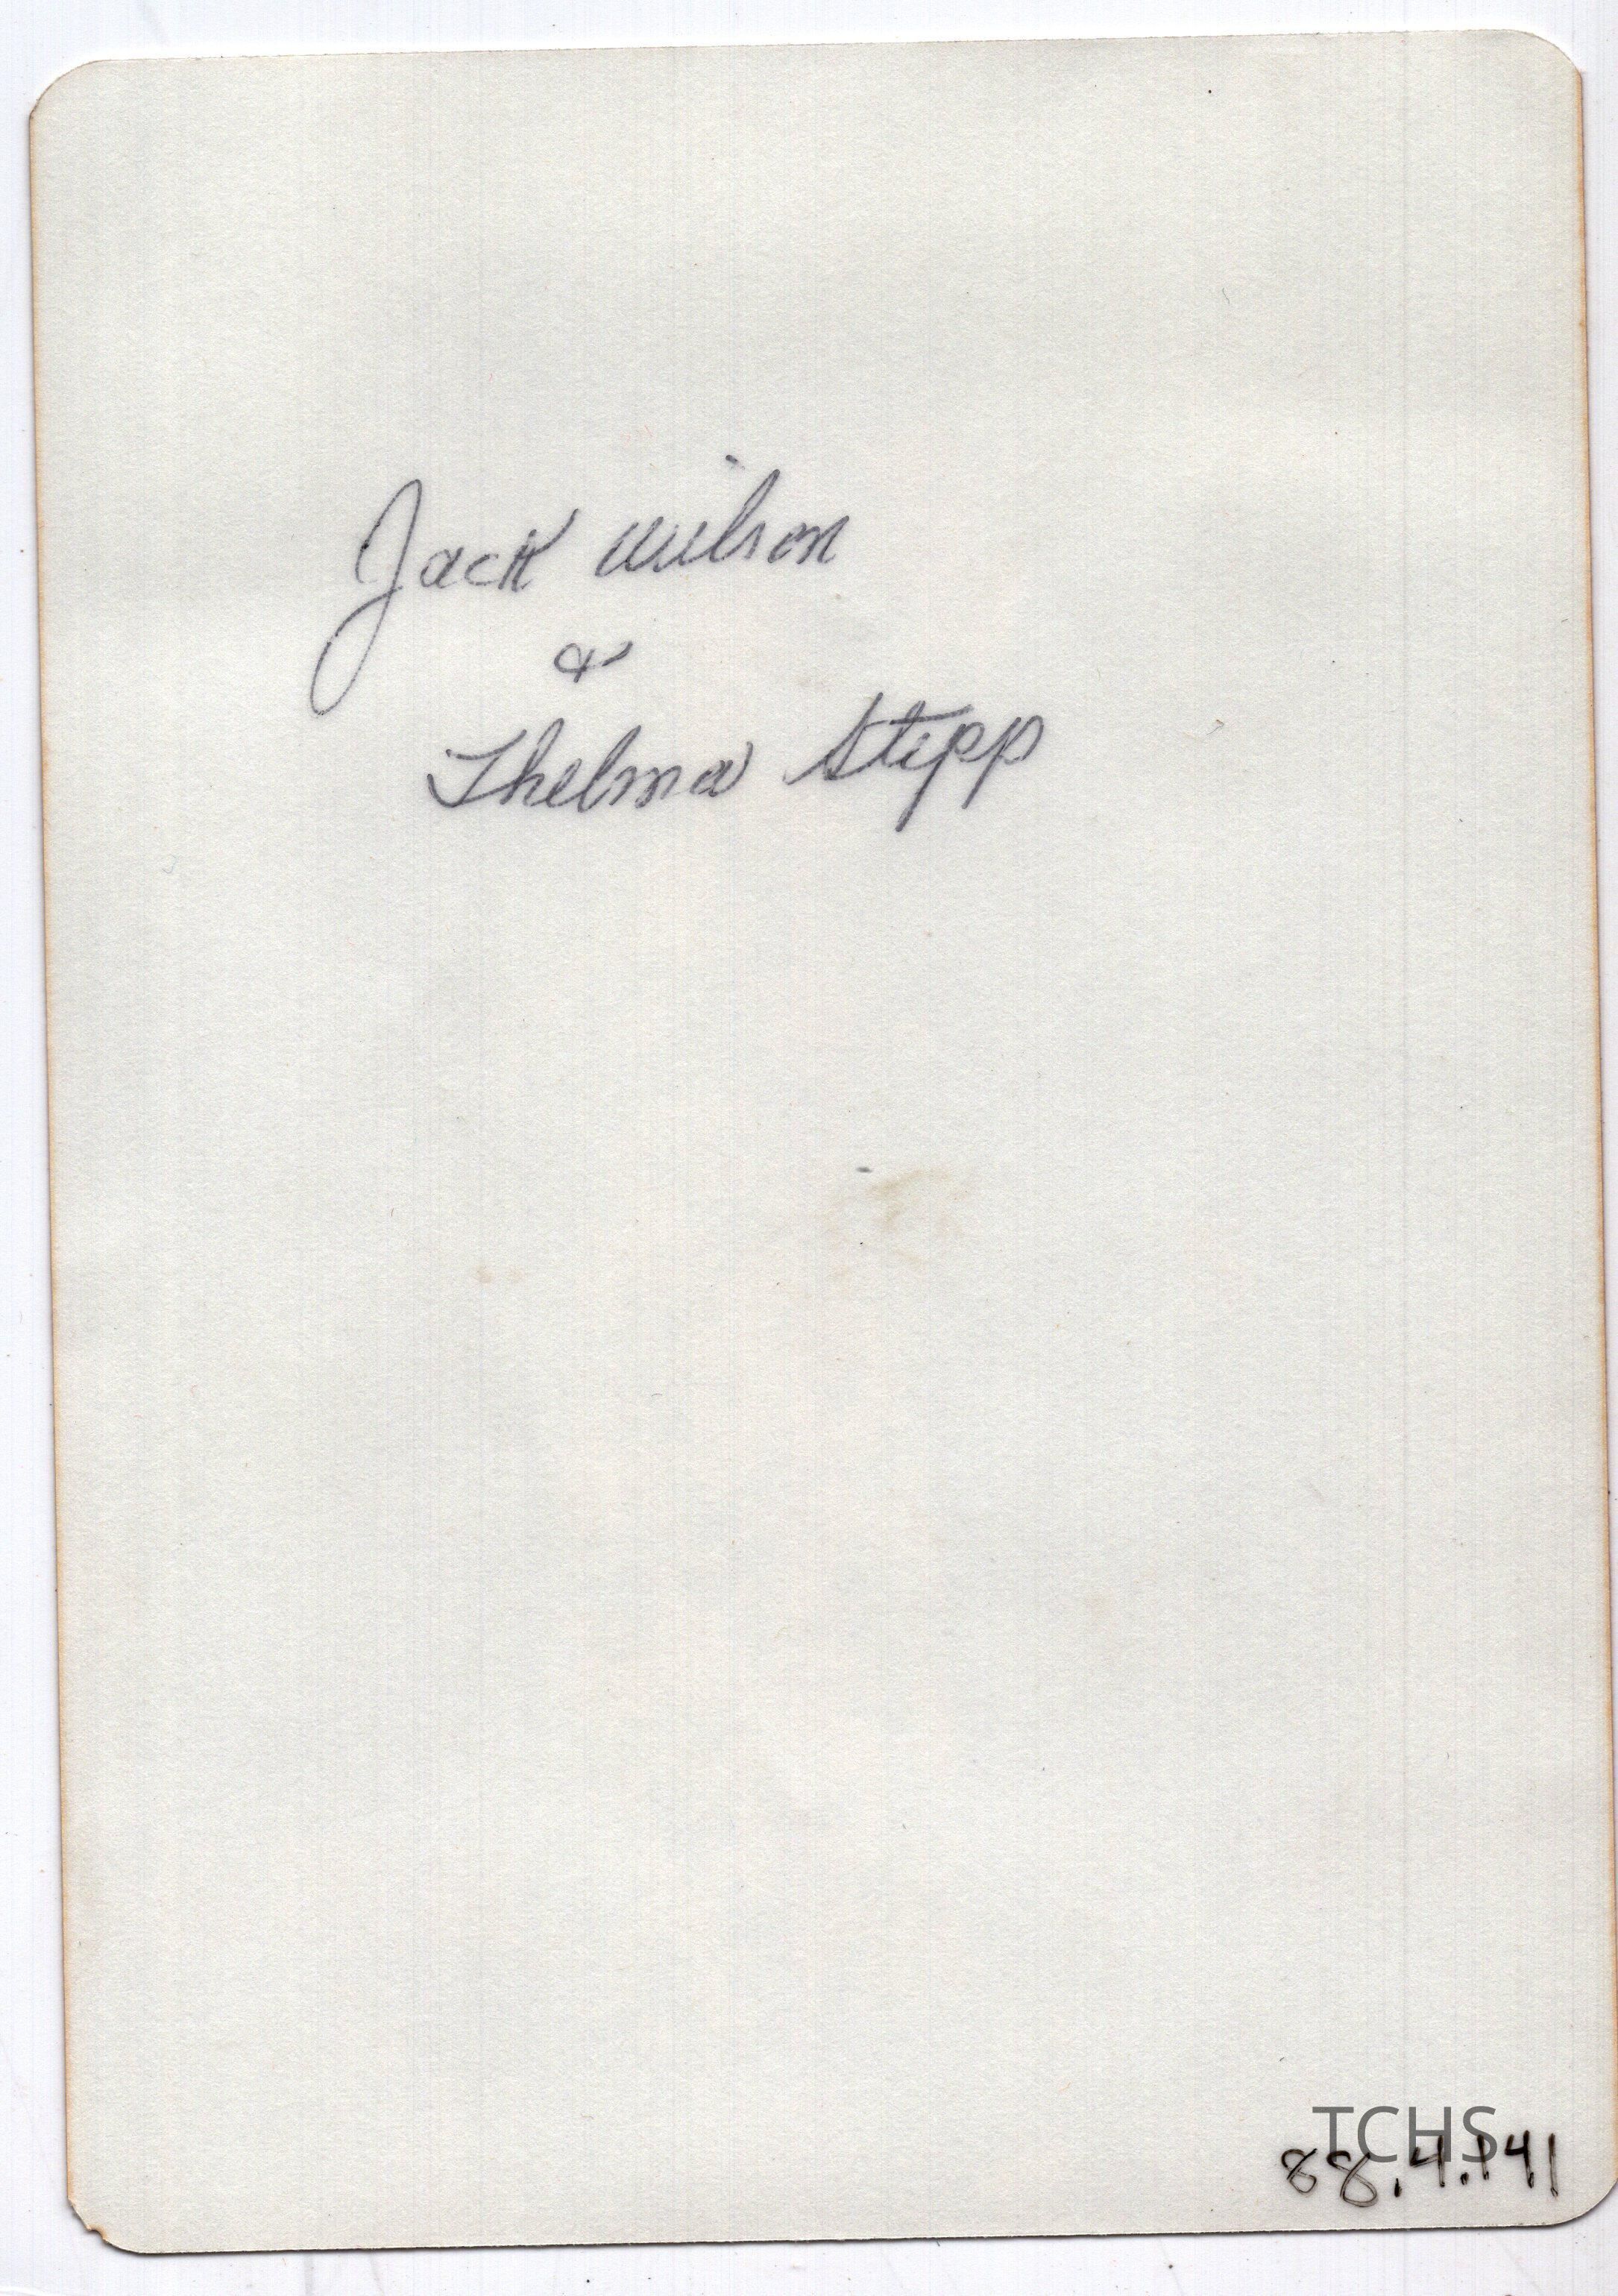 Jack Wilson
&
Thelma Stepp
TCHS
88.4.141